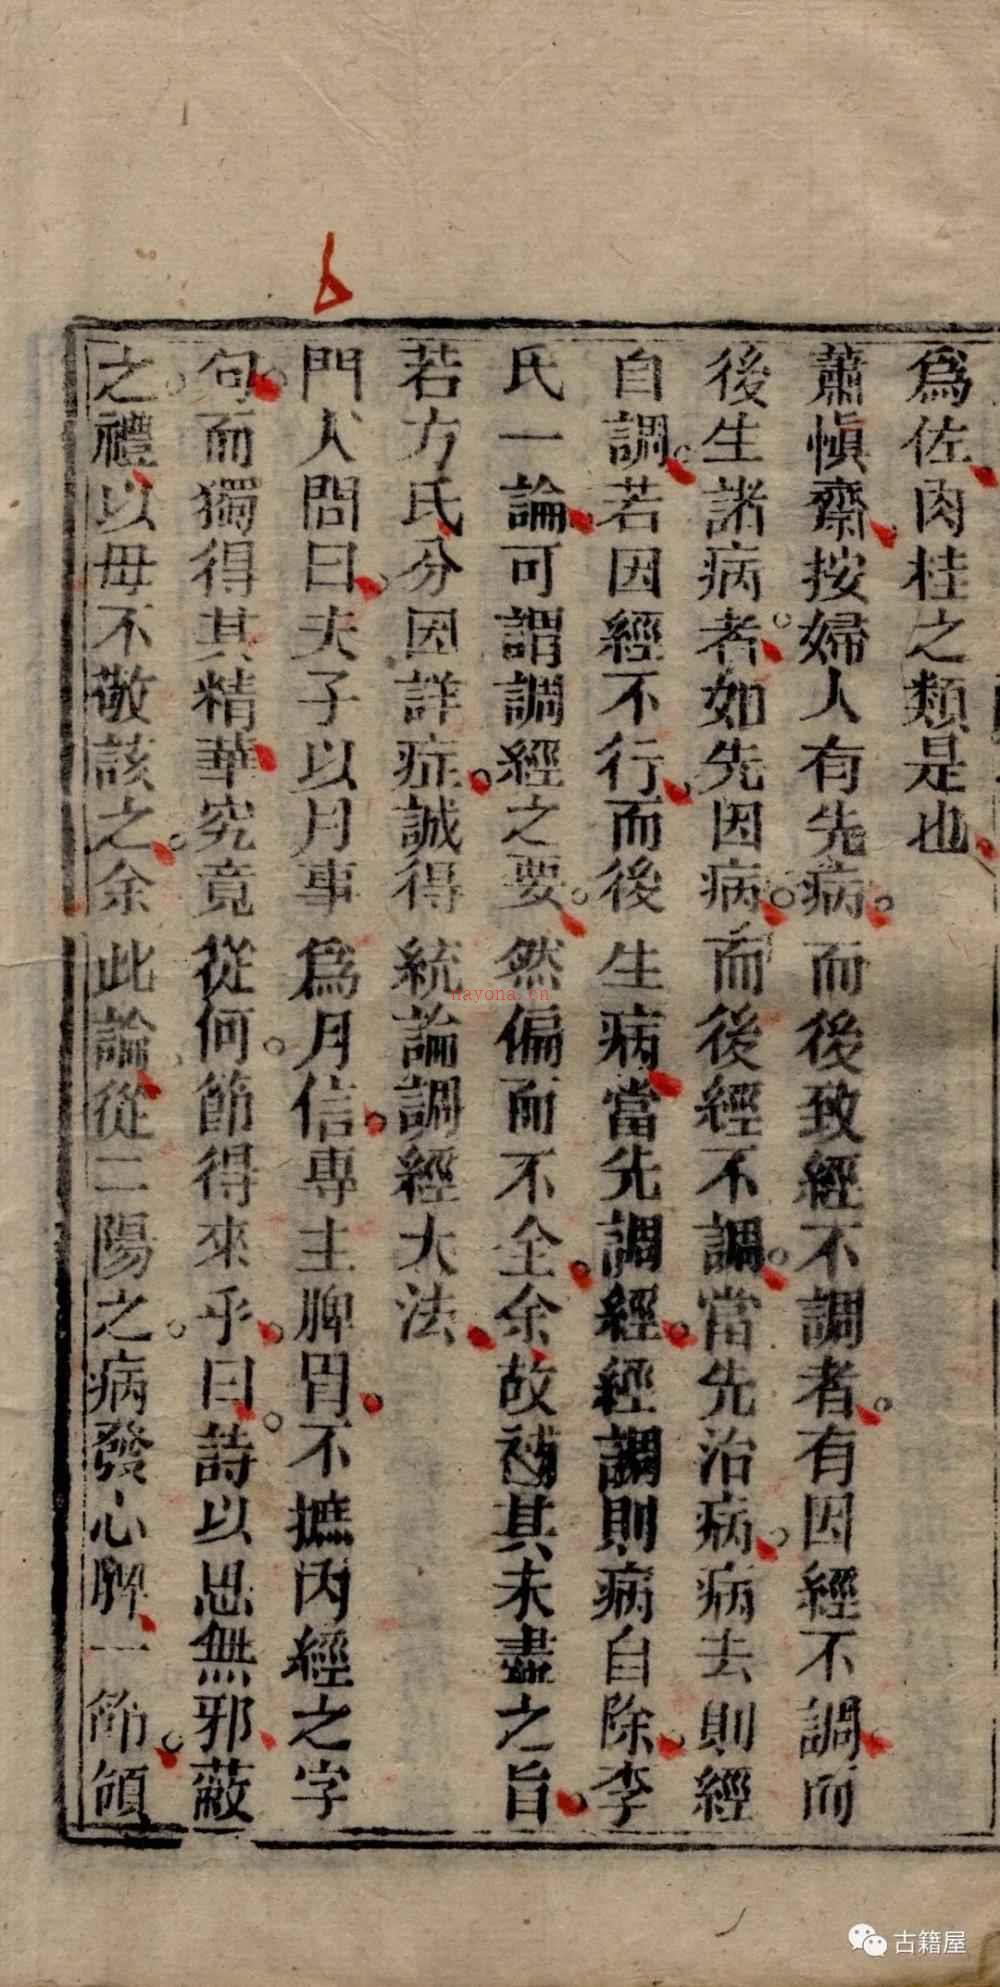 爲佐肉桂之類是也
蕭慎齋按婦人有先病而後致經不調者有因經不調而
後生諸病者如先因病而後經不調當先治病病去則經
自調若因經不行而後生病當先調經經調則病自除李
氏一論可謂調經之要然偏而不全余故補其未盡之旨
若方氏分因詳症誠得統論調經大法
門人問曰夫子以月事爲月信專主脾胃不摭內經之字
句而獨得其精華究竟從何節得來乎曰詩以思無邪蔽
之禮以毋不敬該之余此論從二陽之病發心脾一節領
nayona.cn
古籍屋